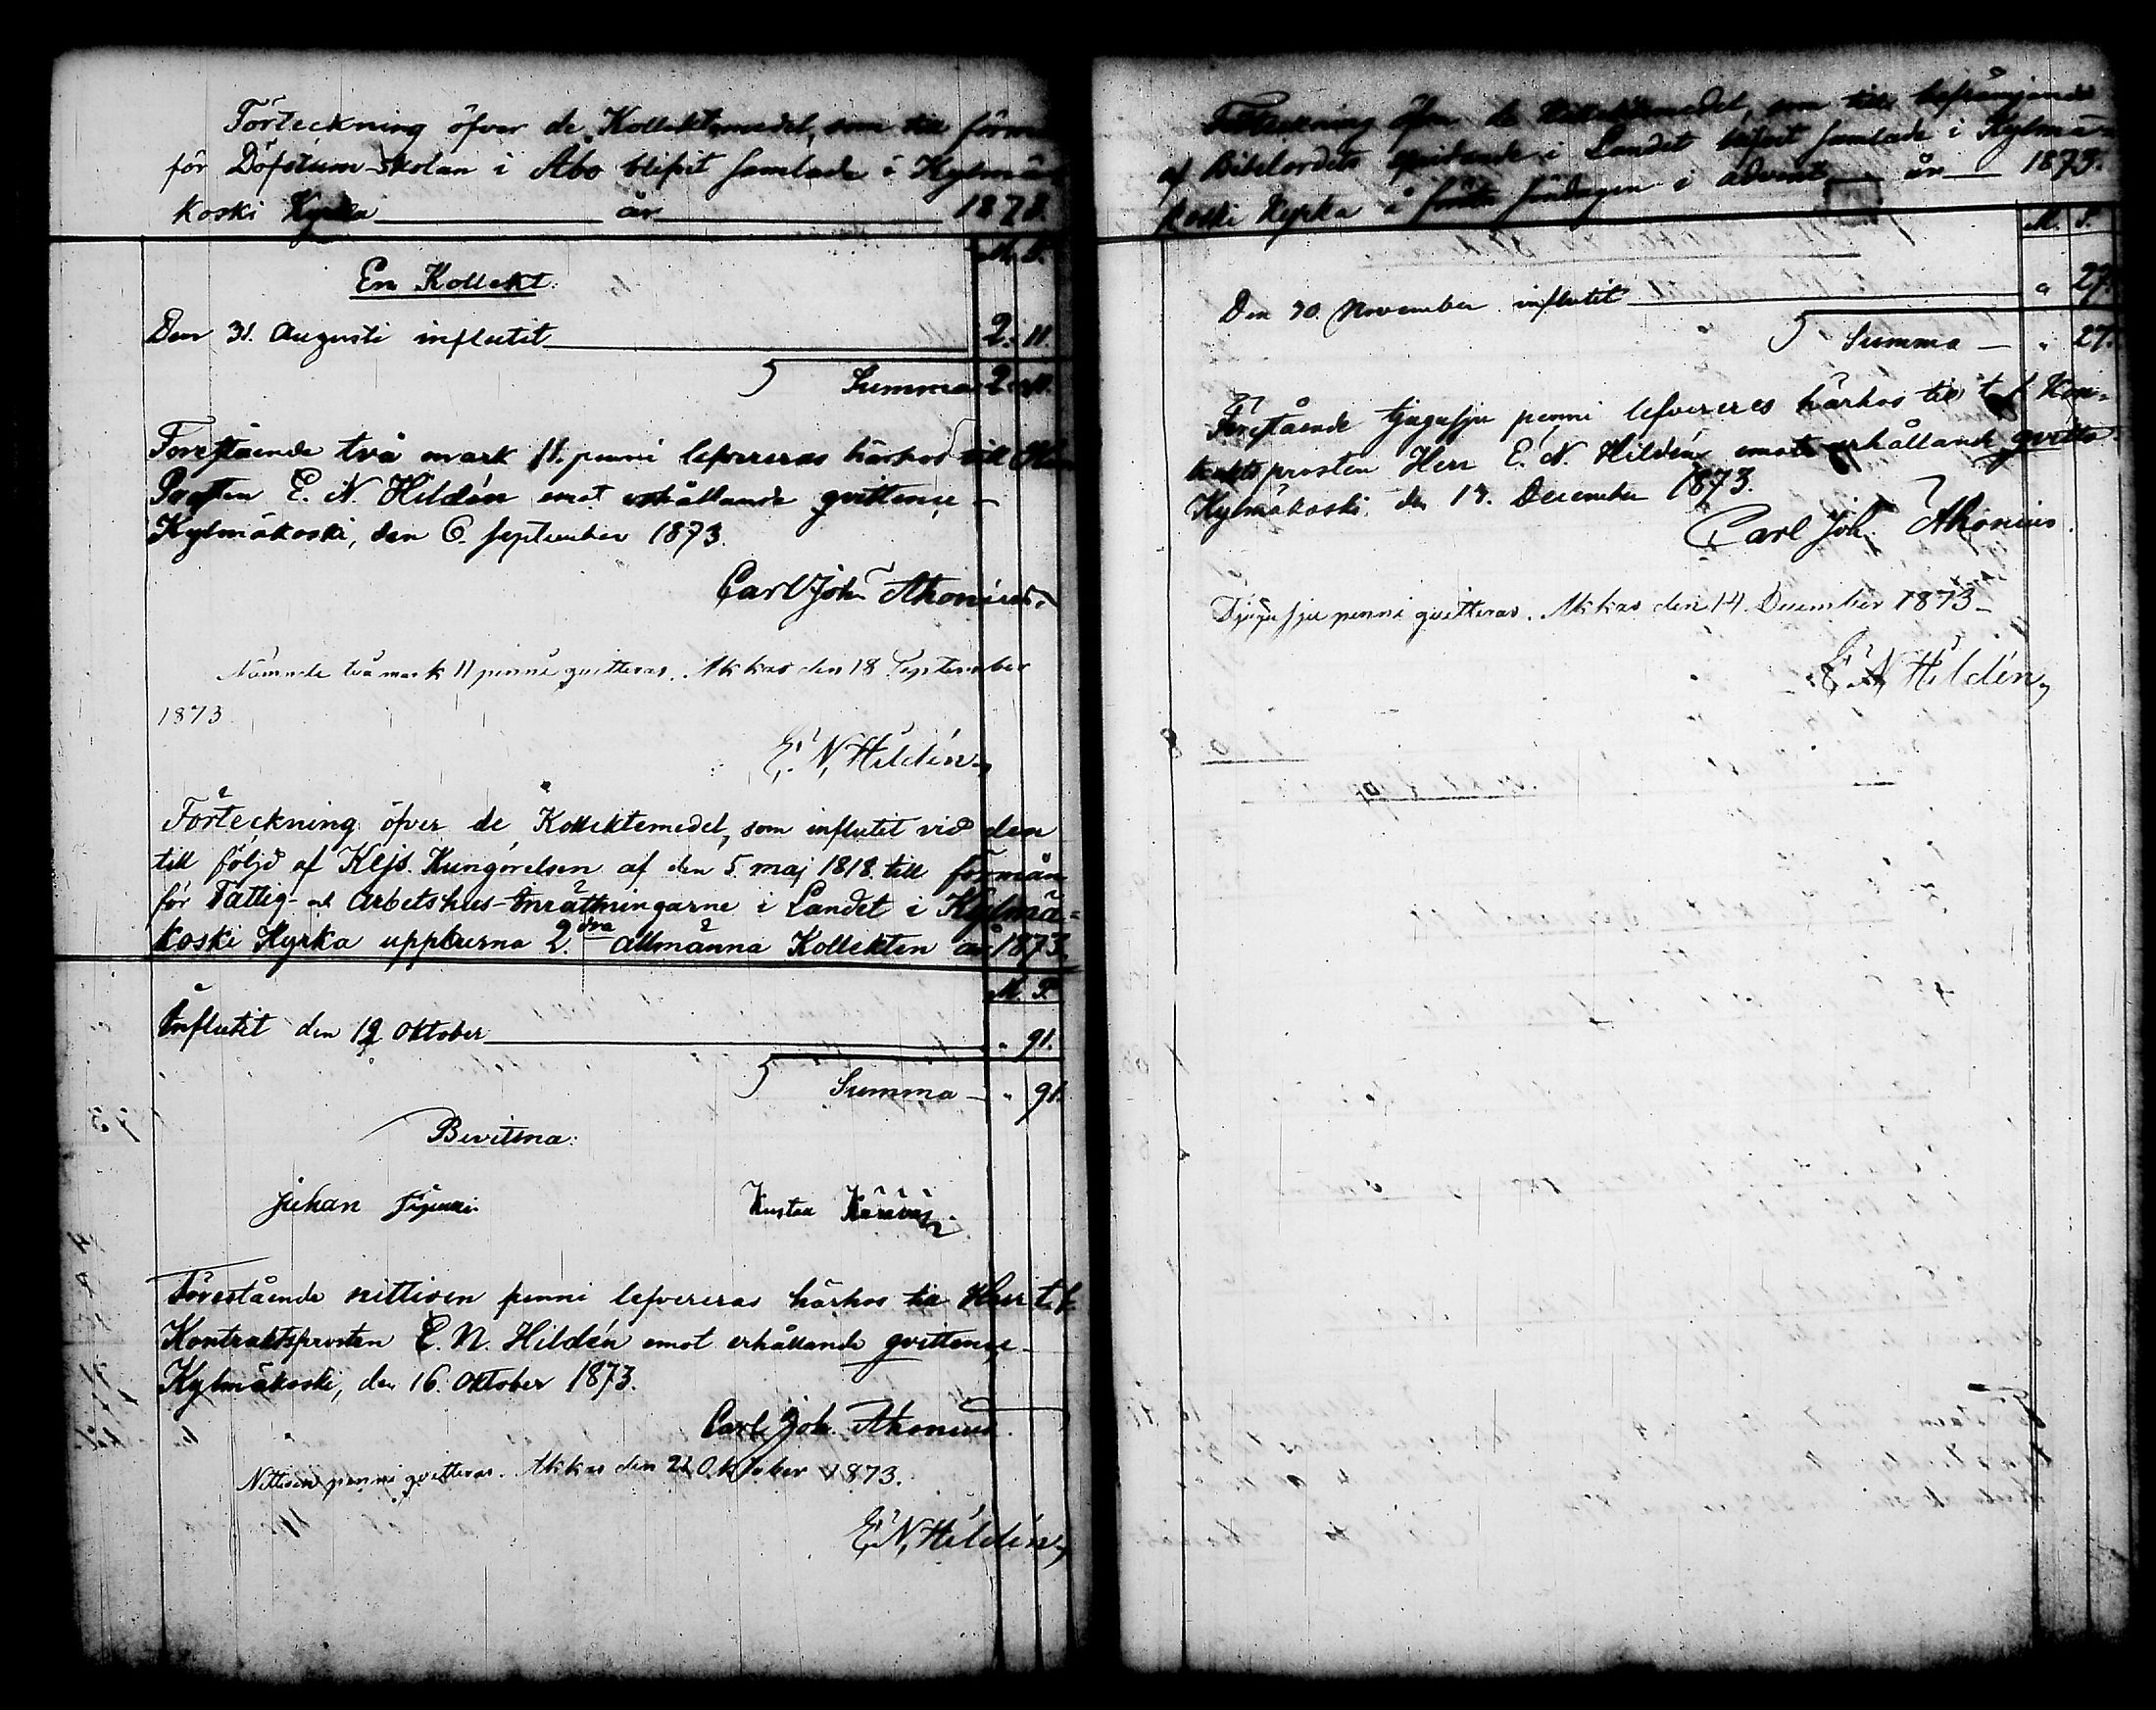 Förteckning öfver de Kollektmedel, som till förm
för Döfstum-skolan i Åbo blifvit samlade i Kylmä-
koski Kyrka år 1873.
M. P.
En Kollekt:
Den 31. Augusti influtit 2. 11.
Summa 2. 11.
Förestående två mark 11. penni lefvereras härhos till
Prosten E. N. Hildén emot erhållande qvittence
Kylmäkoski, den 6. September 1873.
Carl Joh. Ahonius.
Nämnde två mark 11 penni qvitteras. Akkas den 18 September
1873
E. N. Hildén
Förteckning öfver de Kollektemedel, som influtit vid den
till följd af Kejs. Kungörelsen af den 5. maj 1818 till förmån
för Fattig- och Arbetshus-Inrättningarne i Landet i Kylmä=
koski Kyrka uppburna 2.dra allmänna Kollekten år 1873.
M. P.
Influtit den 12 Oktober " 91.
Summa — " 91.
Bevittna:
Juhan Kustaa
Förestående nittioen penni lefvereras härhos till Herr t. f.
Kontraktsprosten E. N. Hildén emot erhållande qvittence
Kylmäkoski, den 16. Oktober 1873.
Carl Joh. Ahonius.
Nittioen penni qvitteras. Akkas den 21 Oktober 1873.
E. N. Hildén
Förteckning öfver de Kollektmedel, som till befrämjande
af Bibelordets spridande i Landet blifvit samlade i Kylmä=
koski Kyrka å första söndagen i advent år 1873.
M. P.
Den 30. November influtit " 27.
Summa — " 27.
Förestående tjugusju penni lefvereras härhos till t. f. Kon-
traktsprosten Herr E. N. Hildén emot erhållande qvitto.
Kylmäkoski, den 13. December 1873.
Carl Joh. Ahonius.
Tjugusju penni qvitteras. Akkas den 14 December 1873
E. N. Hildén